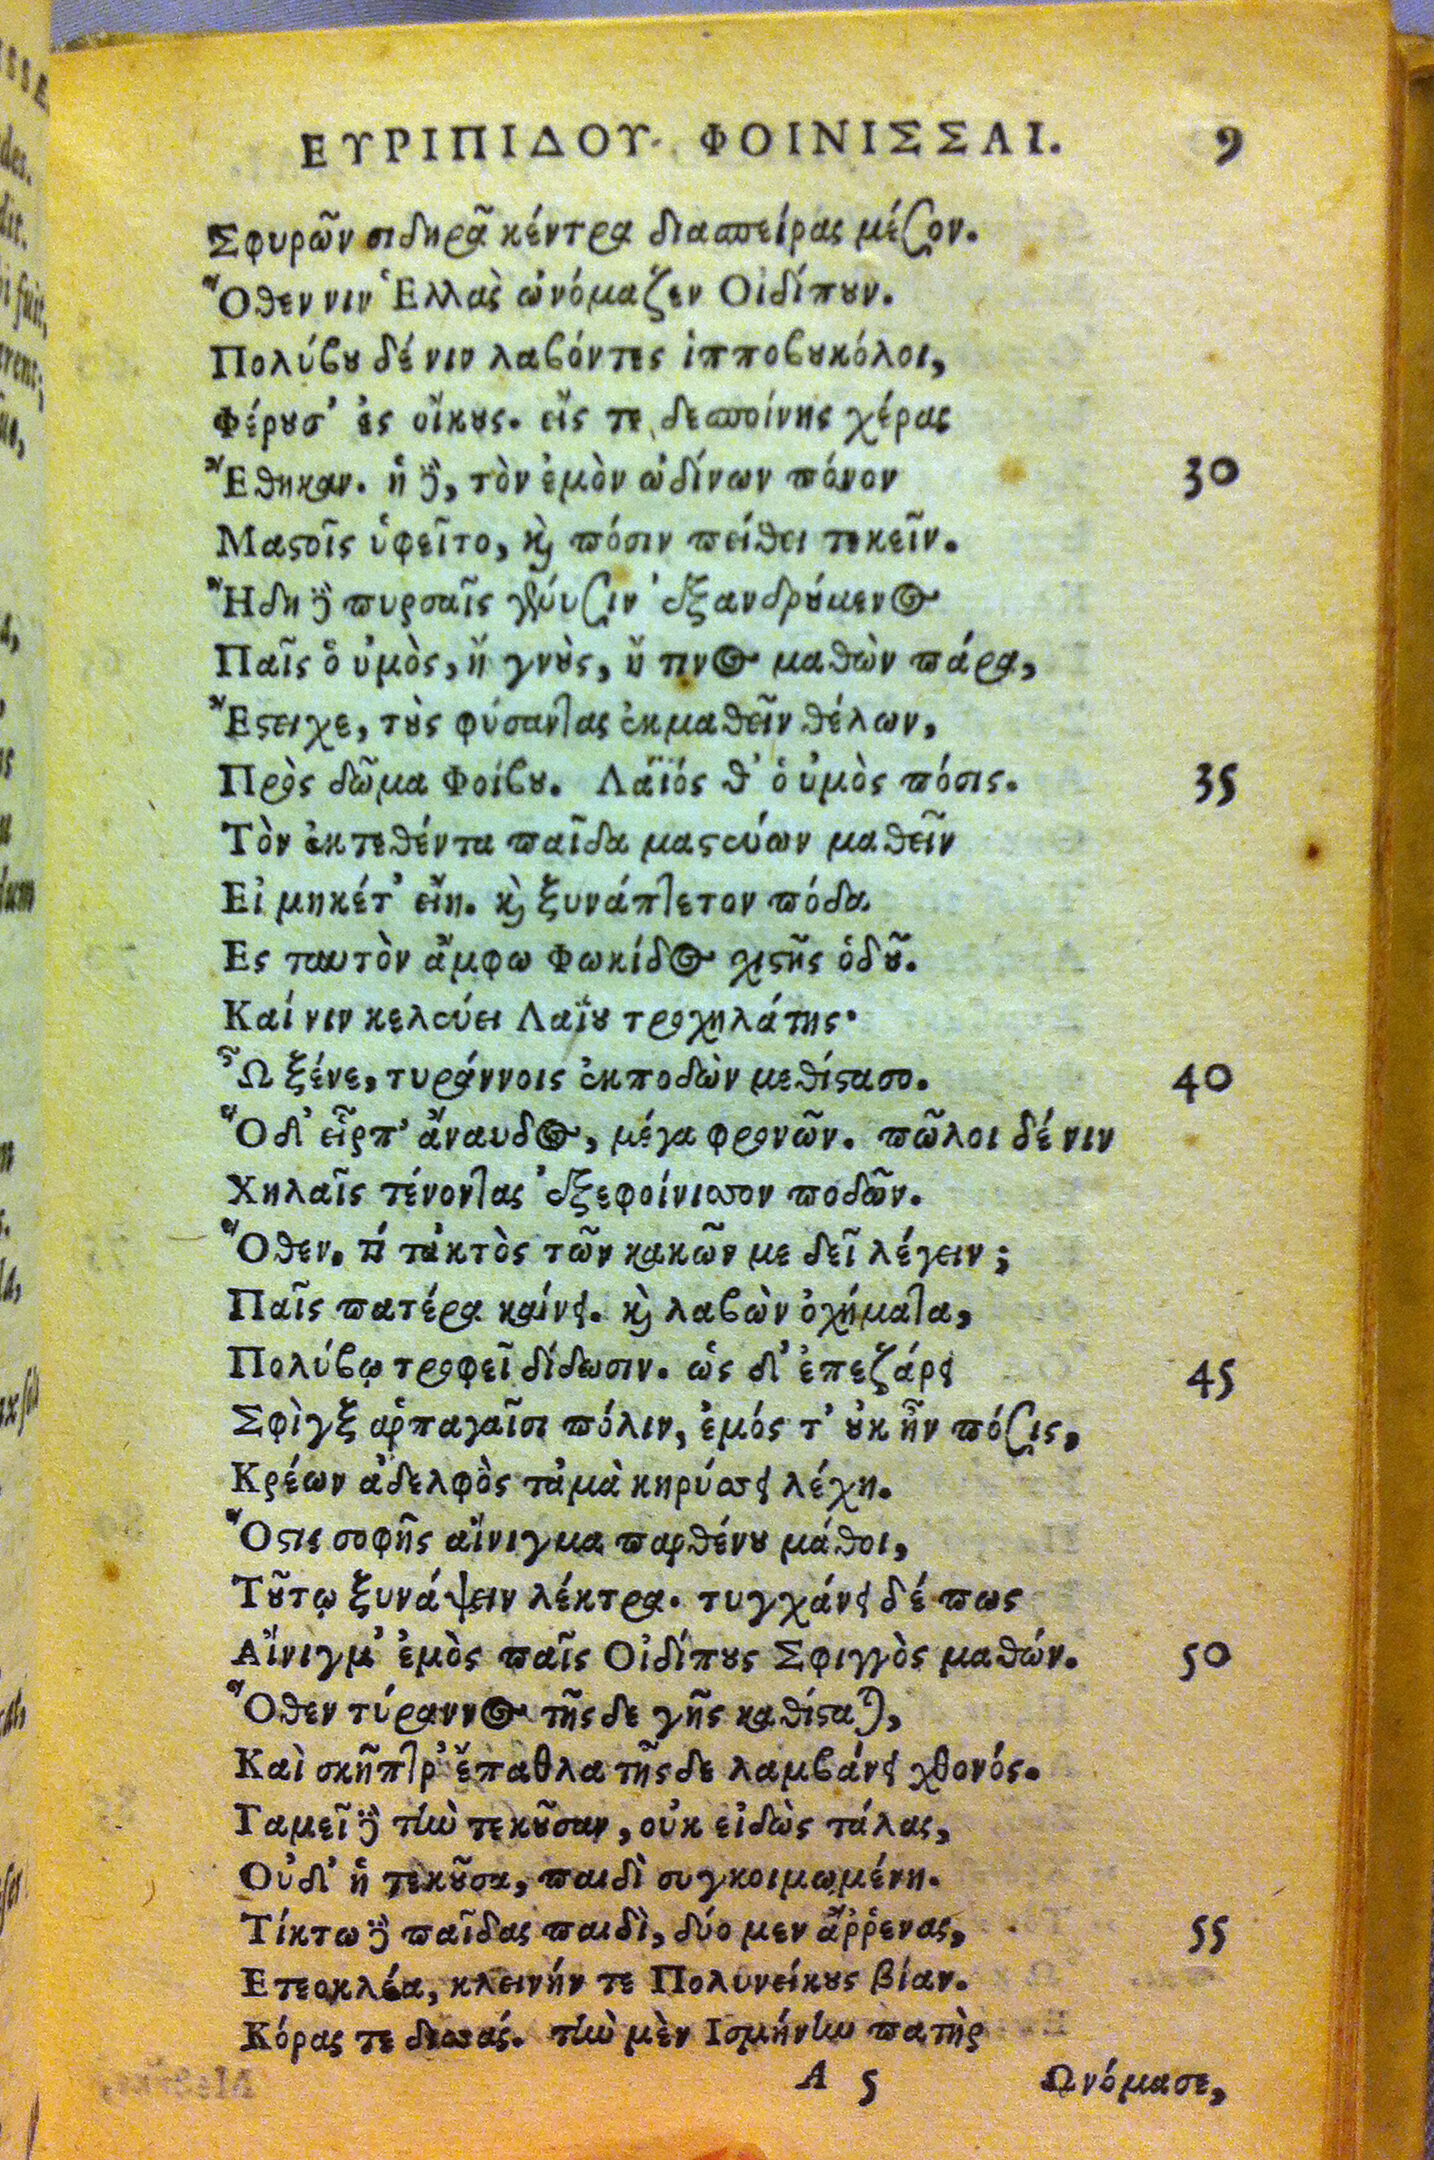 ΕΥΡΙΠΙΔΟΥ ΦΟΙΝΙΣΣΑΙ. 9
Σφυρῶν σιδηρᾶ κέντρα διαπείρας μέσον.
Ὅθεν νιν Ἑλλὰς ὠνόμαζεν Οἰδίπουν.
Πολύβου δέ νιν λαβόντες ἱπποβουκόλοι,
Φέρουσ' ἐς οἴκους. εἴς τε δεσποίνης χέρας
Ἔθηκαν. ἡ δὲ, τὸν ἐμὸν ὠδίνων πόνον 30
Μαστοῖς ὑφεῖτο, καὶ πόσιν πείθει τεκεῖν.
Ἤδη δὲ πυρσαῖς γένυσιν ἐξανδρούμενος
Παῖς ὁ ὑμὸς, ἢ γνοὺς, ἤ τινος μαθὼν πάρα,
Ἔστειχε, τοὺς φύσαντας ἐκμαθεῖν θέλων,
Πρὸς δῶμα Φοίβου. Λάϊός θ' ὁ ὑμὸς πόσις. 35
Τὸν ἐκτεθέντα παῖδα μαστεύων μαθεῖν
Εἰ μηκέτ' εἴη. καὶ ξυνάπτετον πόδα
Ες ταυτὸν ἄμφω Φωκίδος χιστῆς ὁδοῦ.
Καί νιν κελεύει Λαΐου τροχηλάτης·
Ὦ ξένε, τυράννοις ἐκποδὼν μεθίστασο. 40
Ὁδ' εἷρπ' ἄναυδος, μέγα φρονῶν. πῶλοι δέ νιν
Χηλαῖς τένοντας ἐξεφοίνισσον ποδῶν.
Ὅθεν. τί τἀκτὸς τῶν κακῶν με δεῖ λέγειν;
Παῖς πατέρα καίνει. καὶ λαβὼν ὀχήματα,
Πολύβῳ τροφεῖ δίδωσιν. ὡς δ' ἐπεζάρει 45
Σφὶγξ ἁρπαγαῖσι πόλιν, ἐμός τ' οὐκ ἦν πόσις,
Κρέων ἀδελφὸς τἀμὰ κηρύσσει λέχη.
Ὅστις σοφῆς αἴνιγμα παρθένου μάθοι,
Τούτῳ ξυνάψειν λέκτρα. τυγχάνει δέ πως
Αἴνιγμ' ἐμὸς παῖς Οἰδίπους Σφιγγὸς μαθών. 50
Ὅθεν τύραννος τῆσδε γῆς καθίσταται,
Καὶ σκῆπτρ' ἔπαθλα τῆσδε λαμβάνει χθονός.
Γαμεῖ δὲ τὴν τεκοῦσαν, οὐκ εἰδὼς τάλας,
Οὐδ' ἡ τεκοῦσα, παιδὶ συγκοιμωμένη.
Τίκτω δὲ παῖδας παιδὶ, δύο μεν ἄῤῥενας, 55
Ετεοκλέα, κλεινήν τε Πολυνείκους βίαν.
Κόρας τε δισσάς. τὴν μὲν Ισμήνην πατὴρ
A 5 Ωνόμασε,